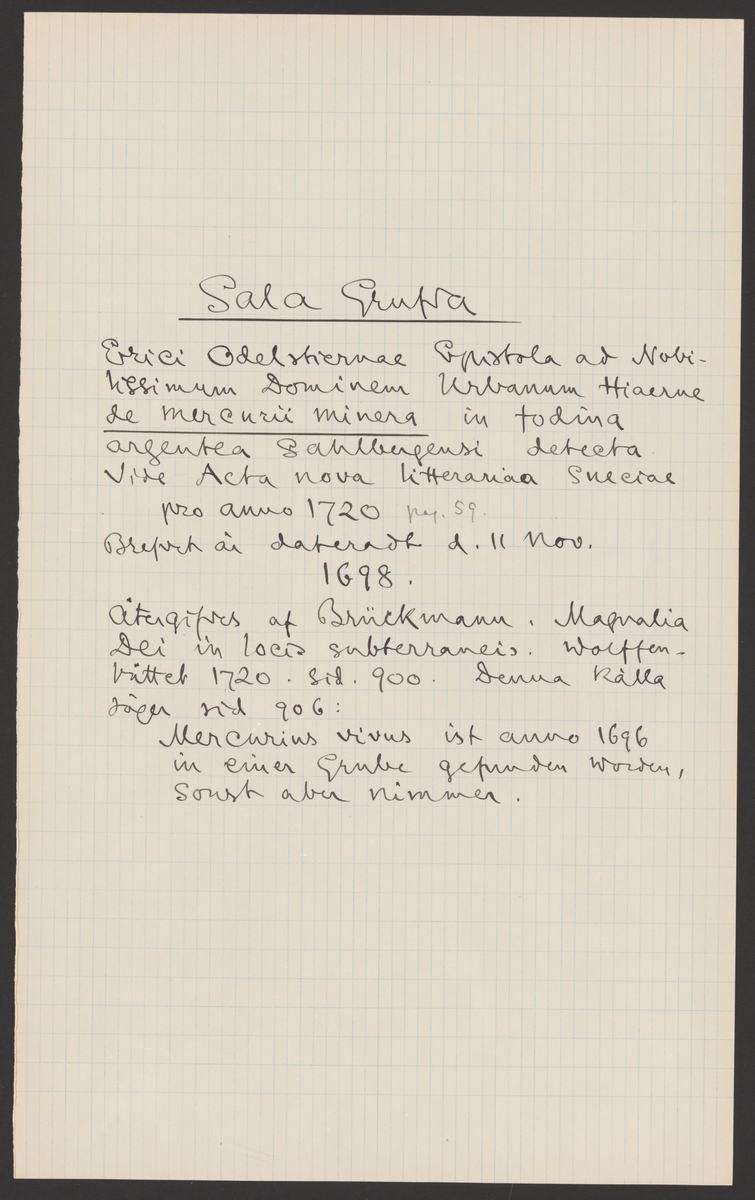 Sala Grufva
Erici Odelstiernae Epistola ad Nobi-
lissimum Dominem Urbanum Hiaerne
de mercurii minera in fodina
argentea Sahlbergensi detecta
Vide Acta nova litterariaa Sueciae
pro anno 1720 pag. 59.
Brefvet är dateradt d. 11 Nov.
1698.
Återgifves af Brückmann. Magnalia
Dei in locis subterraneis. Wolffen-
büttel 1720. Sid. 900. Denna källa
säger sid 906:
Mercurius vivus ist anno 1696
in einer Grube gefunden worden,
sonst aber nimmer.